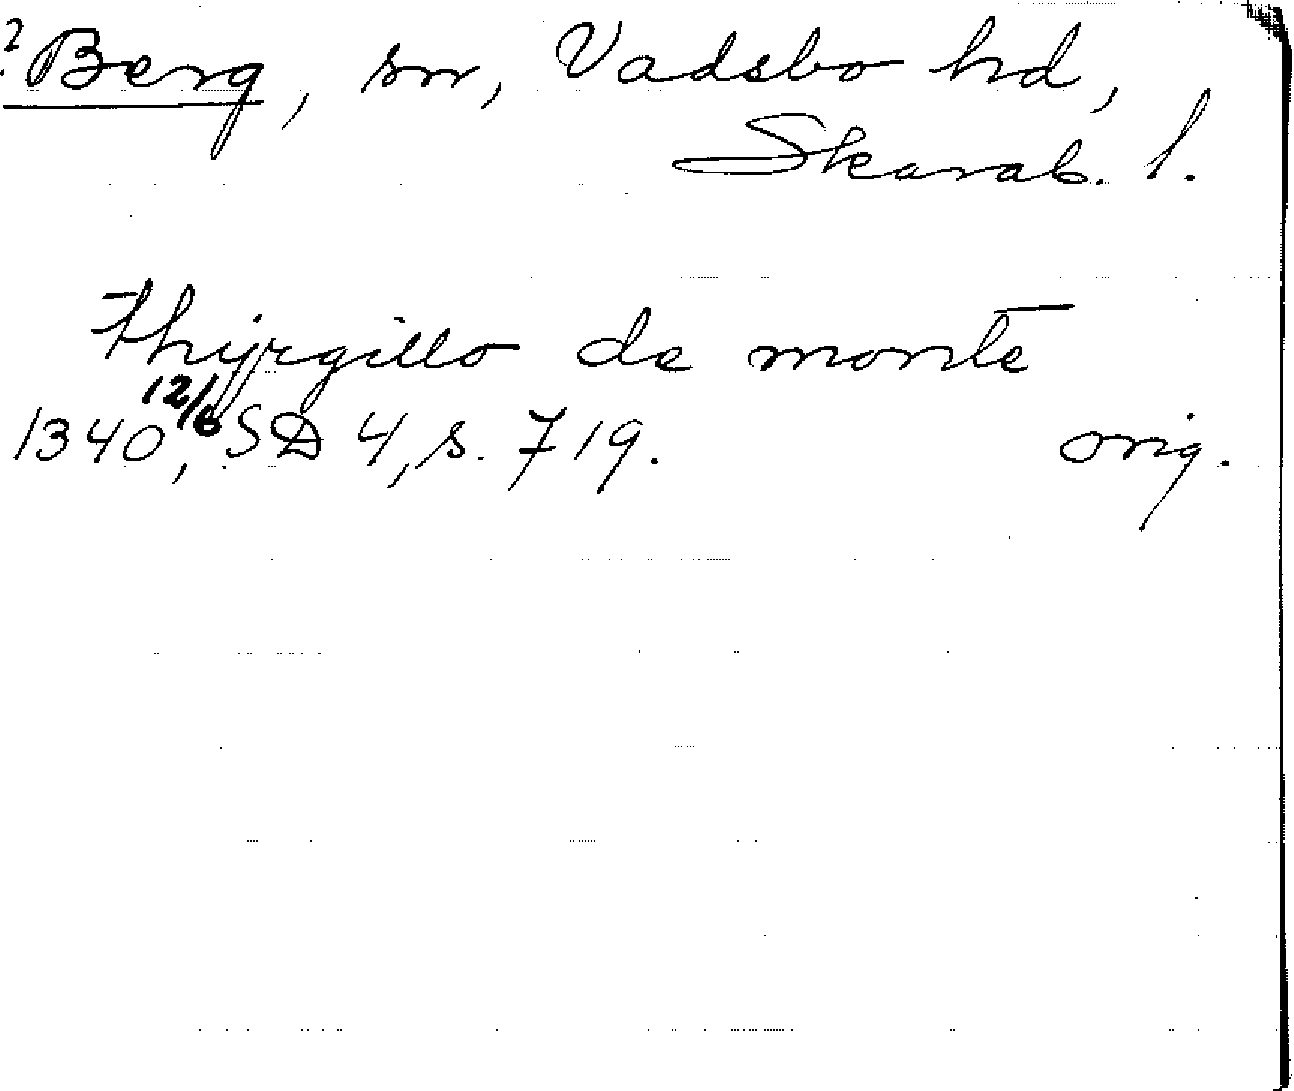 ? Berg, sn, Vadsbo hd,
Skarab. l.
thyrgillo de monte
1340 12/6, SD 4, s. 719. orig.